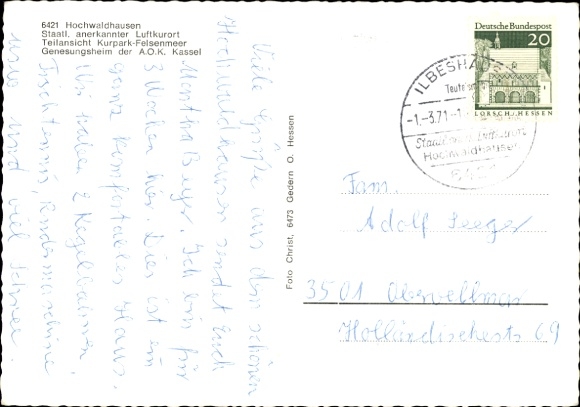 6421 Hochwaldhausen
Staatl. anerkannter Luftkurort
Teilansicht Kurpark-Felsenmeer
Genesungsheim der A.O.K. Kassel
Viele Grüße aus dem schönen
Hochwaldhausen sendet Euch
Martha Beyer. Ich bin für
3 Wochen hier. Dies ist ein
ganz komfortables Haus.
Wir haben 2 Kegelbahnen,
Tischtennis,
usw und viel Schnee
Foto Christ, 6473 Gedern O. Hessen
Deutsche Bundespost
20
LORSCH/HESSEN
ILBESHAUSEN
-1.-3.71-1
Staatl. Luftkurort
Hochwaldhausen
Fam.
Adolf Seeger
3501 Obervellmar
Holländischestr 69